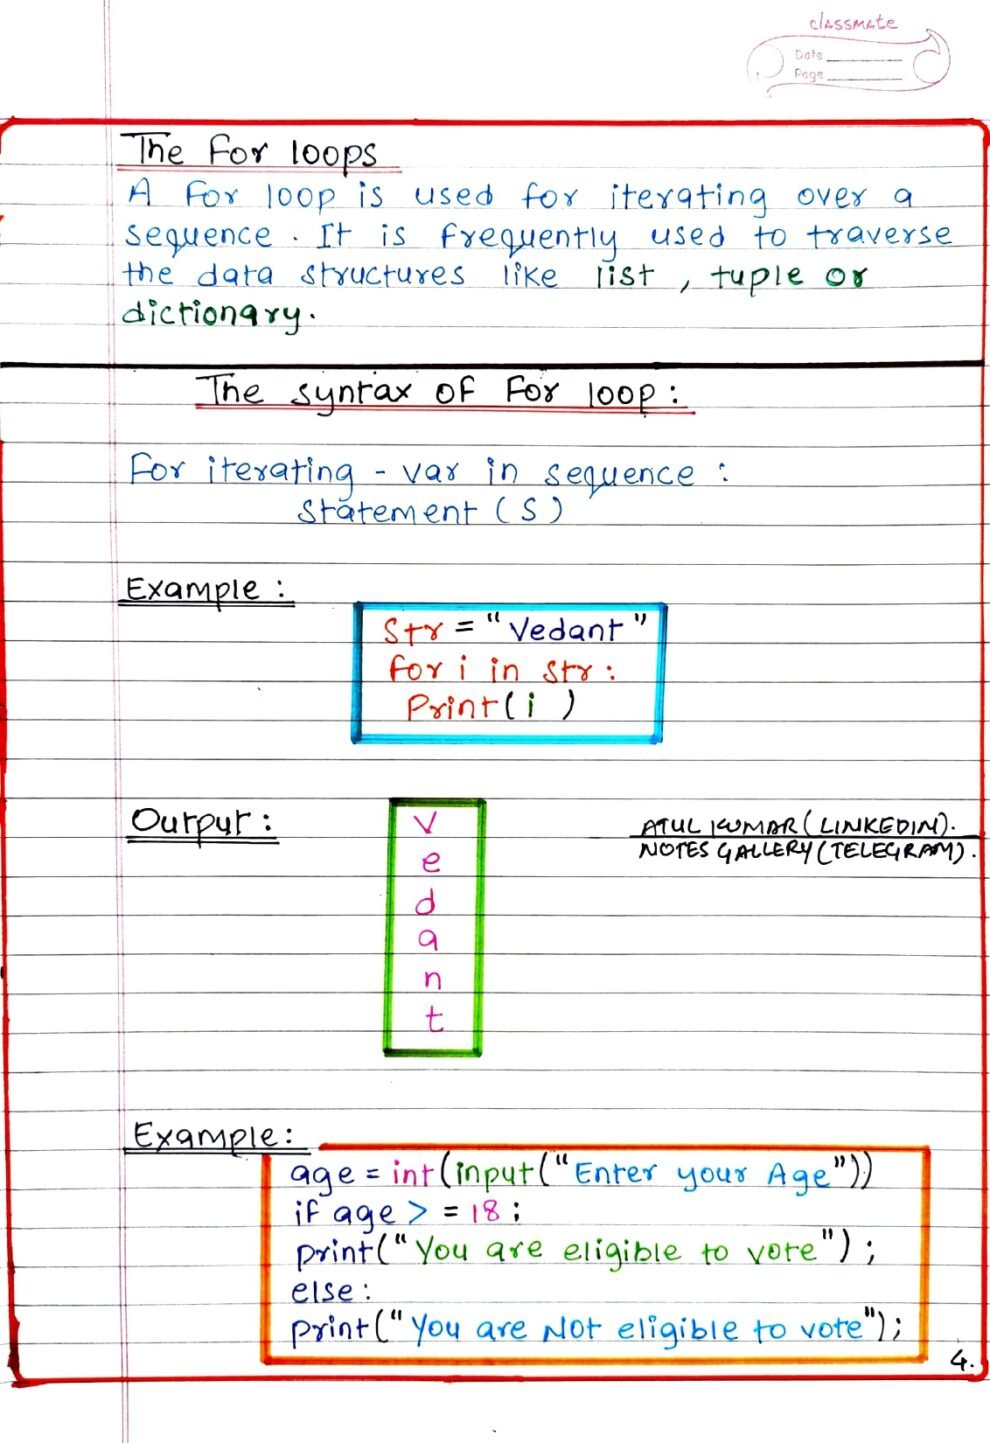 classmate
Date
Page
The For loops
A For loop is used for iterating over a
sequence. It is frequently used to traverse
the data structures like list, tuple or
dictionary.
The syntax of For loop:
For iterating - var in sequence:
Statement (S)
Example:
Str = "Vedant"
for i in str:
Print(i )
Output:
V
e
d
a
n
t
ATUL KUMAR (LINKEDIN).
NOTES GALLERY (TELEGRAM).
Example:
age = int(input("Enter your Age"))
if age > = 18;
print("You are eligible to vote");
else:
print("You are NOT eligible to vote");
4.